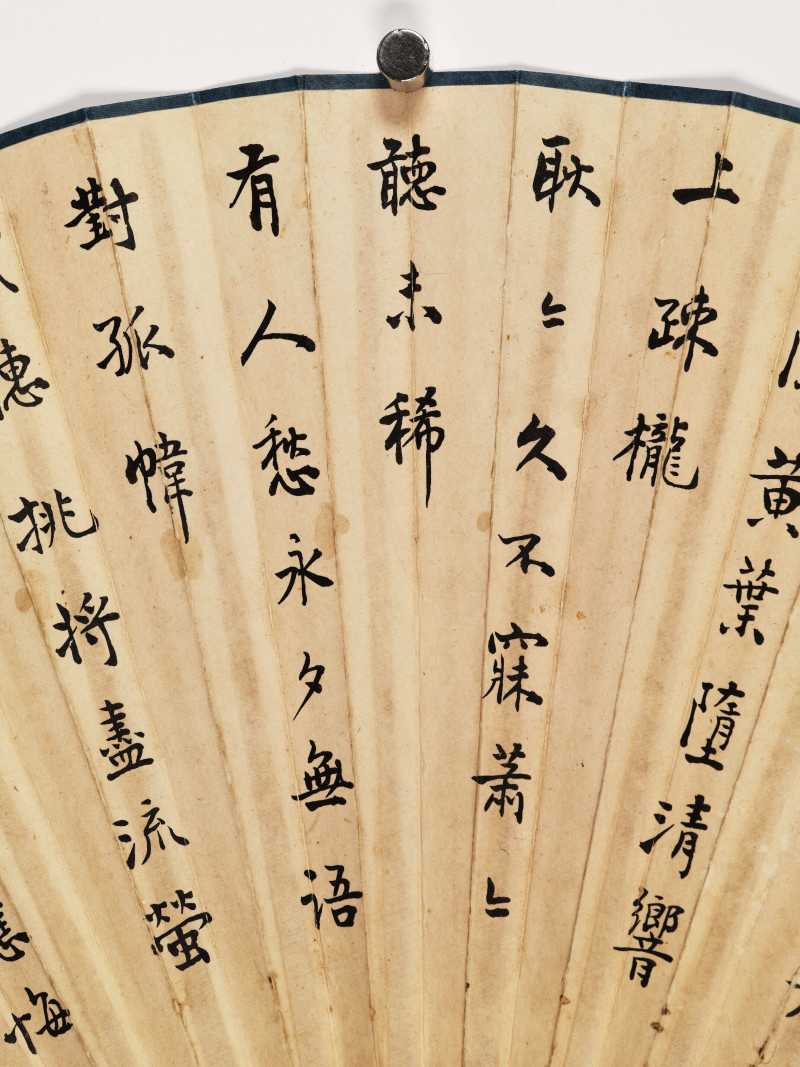 黄葉墮清響
上疎櫳
耿〻久不寐蕭〻
聽未稀
有人愁永夕無語
對孤幃
挑將盡流螢
悔